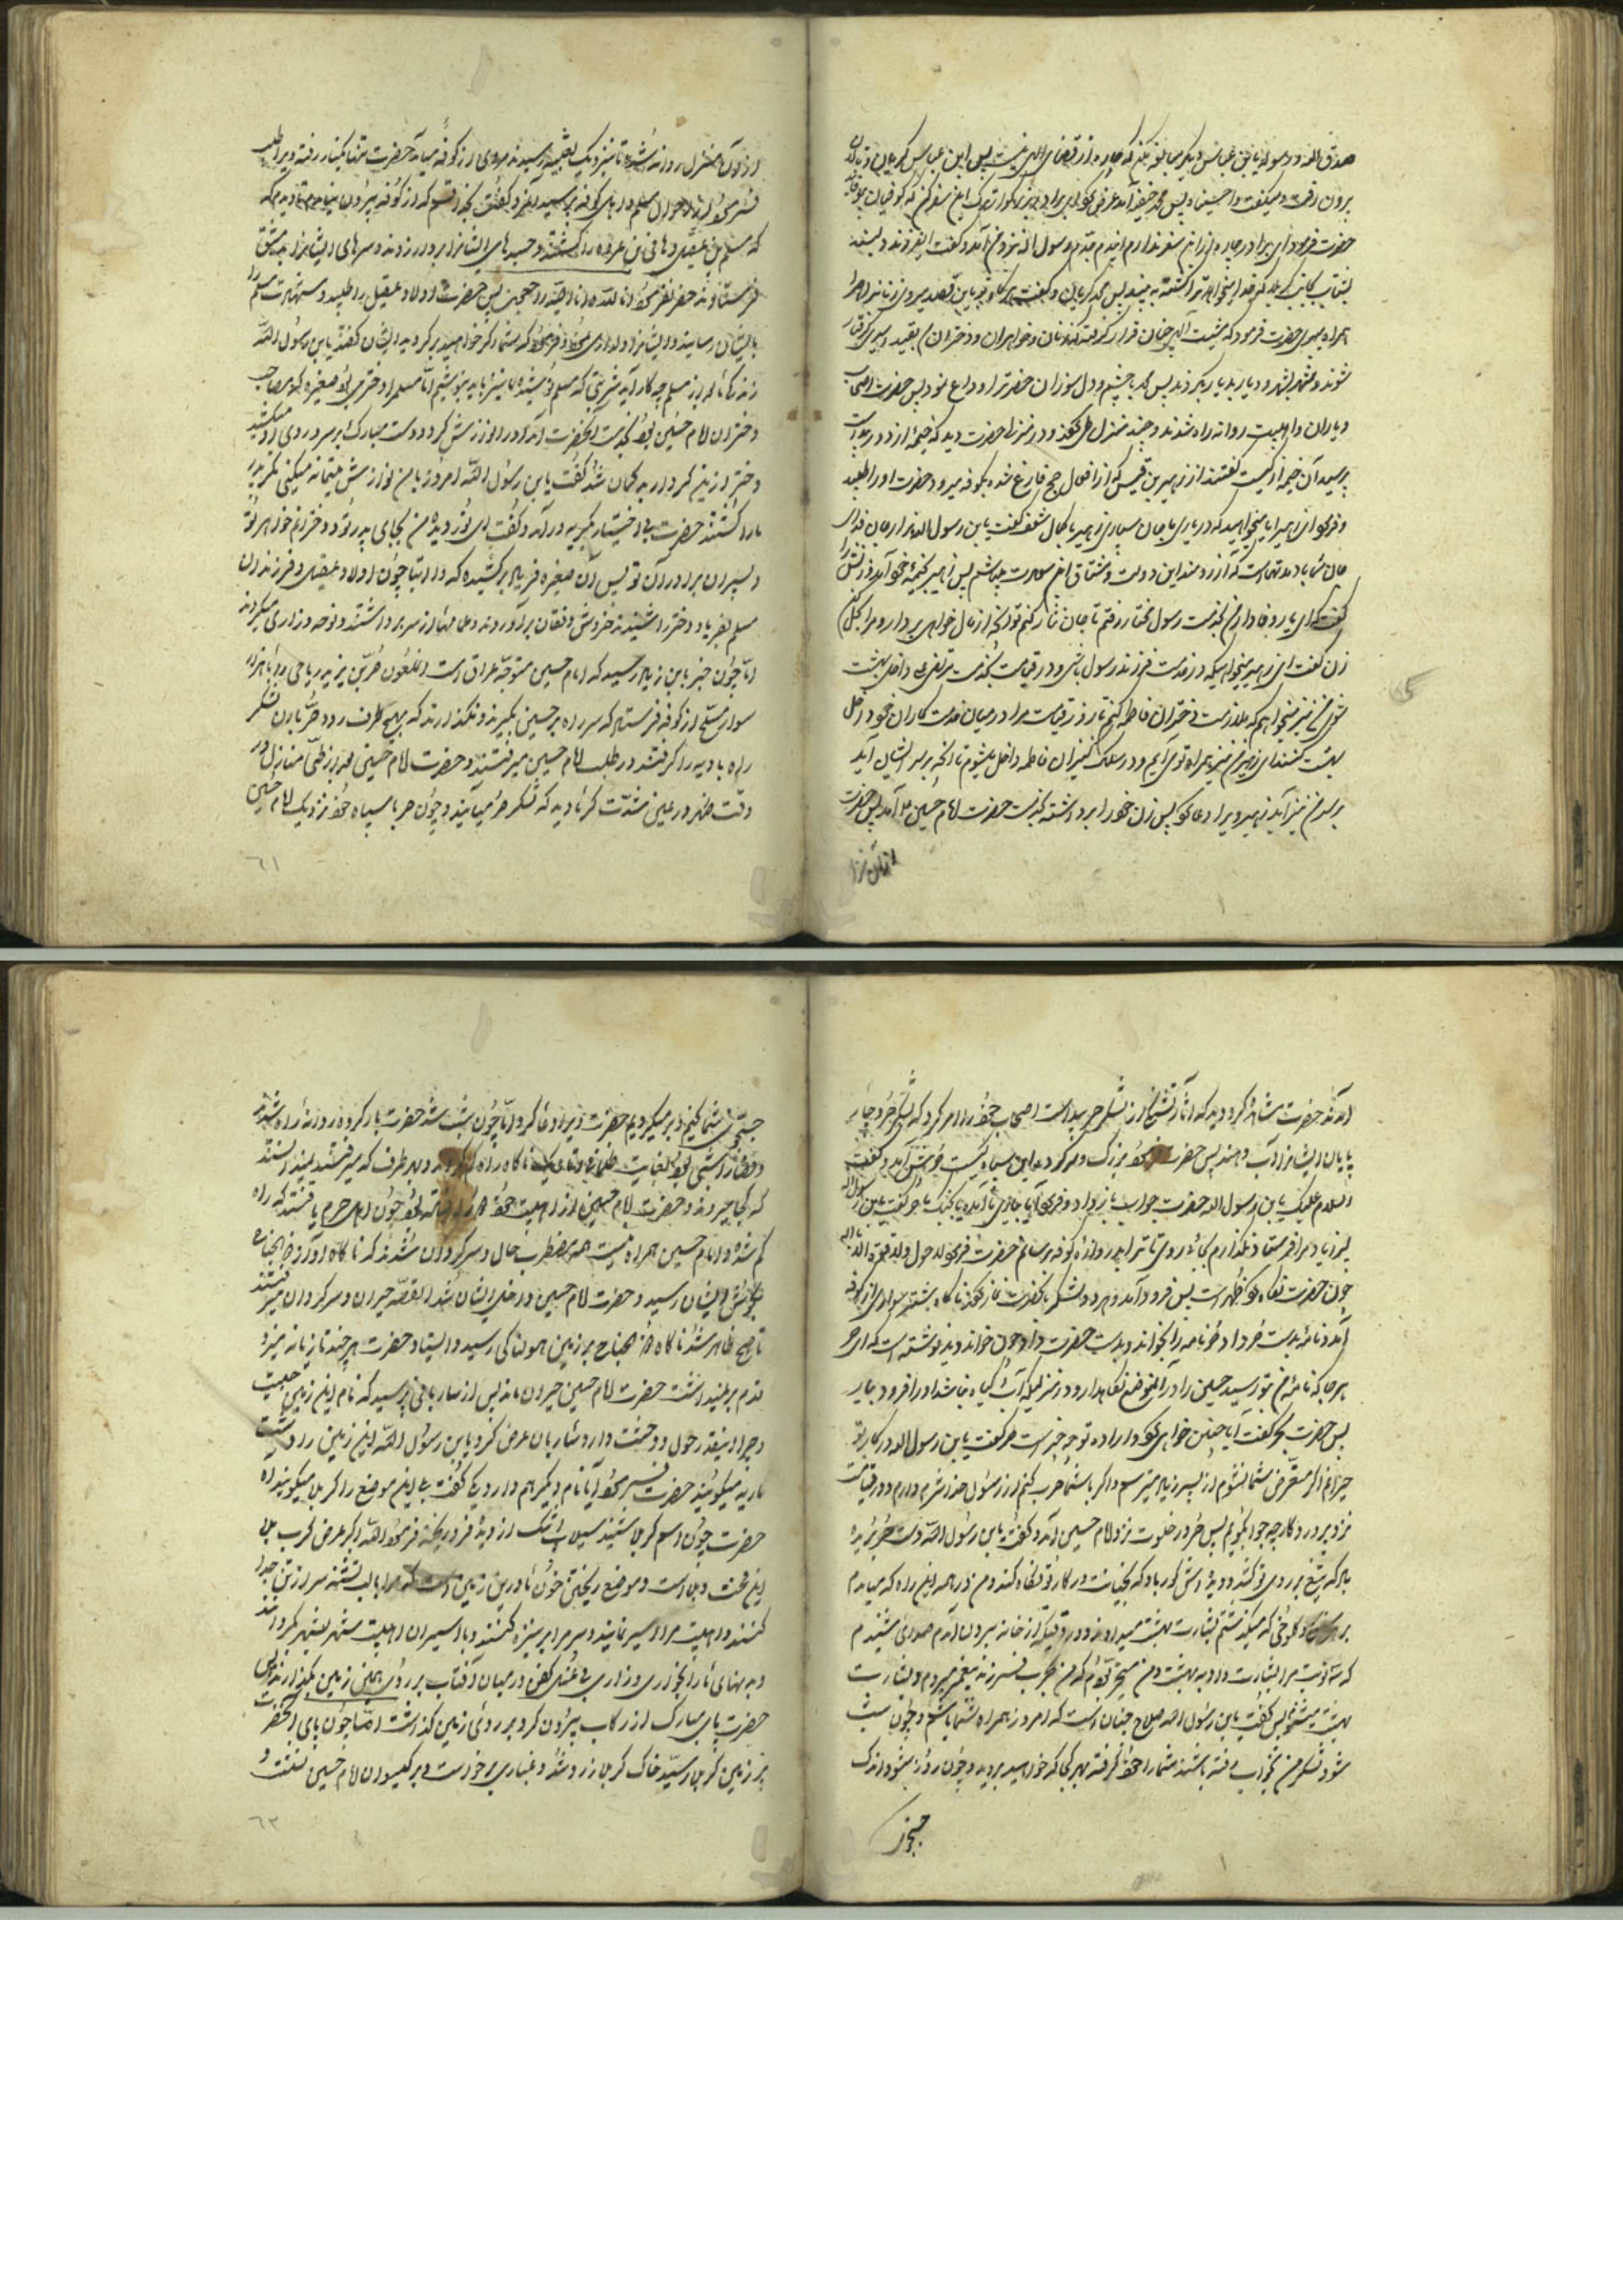 صدق الله و رسوله یا بن عباس دیگر مبالغه مکن که چاره از قضای الهی نیست پس ابن عباس گریان و نالان
برون رفت و میگفت وا حسیناه پس محمد حنفیه آمد عرض کرد ای برادر بزرگوار ترک این سفر کن که کوفیان بیوفایند
حضرت فرمود ای برادر چاره از این سفر ندارم جدم رسول الله نزد من آمد و گفت ای فرزند
بشتاب که خدا میخواهد ترا کشته به بیند پس محمد گریان و گفت هر گاه باین قصد میروی زنانرا چرا
همراه میبری حضرت فرمود که مشیت الهی چنان قرار گرفته که زنان و خواهران و دختران بقید اسیری گرفتار
شوند و شهر بشهر و دیار بدیار بگردند پس محمد با چشم و دل سوزان حضرترا وداع نمود پس حضرت با اصحاب
و یاران و اهلبیت روانه راه شدند و چند منزل طی نمودند و در منزلی حضرت دید که خیمه از دور پیداست
پرسید آن خیمه از کیست گفتند از زهیر بن قین که از افعال حج فارغ شده بکوفه میرود حضرت او را طلبید
و فرمود ای زهیر آیا میخواهید که در یاری ما جان سپاری زهیر با کمال شعف گفت یا بن رسول الله هزار جان فدای
جان شما باد مدتهاست که آرزومند این دولت و مشتاق این سعادت میباشم پس زهیر بخیمه خود آمد و زنش را
گفت که ای یار وفادار من بخدمت رسول مختار رفتم تا جان نثار کنم تو آنچه از مال خواهی بردار و مرا بحل کن
زن گفت ای زهیر میخواهی که در خدمت فرزند رسول باشی و در قیامت بخدمت مرتضی علی داخل بهشت
شوی من نیز میخواهم که ملازمت دختران فاطمه کنم تا روز قیامت مرا در میان خدمتکاران خود داخل
بهشت کنند ای زهیر من نیز همراه تو می آیم و در سلک کنیزان فاطمه داخل میشوم تا آنچه بر سر ایشان آید
بر سر من نیز آید زهیر ویرا دعا کرد پس زن خود را برداشته بخدمت حضرت امام حسین آمد پس حضرت
از آن منزل
از آن منزل روانه شد تا بنزدیک رسیدند مردی از کوفه می آمد حضرت تنها بکنار رفته ویرا طلب
فرمود و از احوال مسلم و اهل کوفه پرسید آنمرد گفت بخدا قسم که از کوفه بیرون نیامدم تا دیدم که
که مسلم بن عقیل و هانی بن عروه را کشتند و جسدهای ایشانرا بردار زدند و سرهای ایشانرا بدمشق
فرستادند حضرت فرمود انا لله و انا الیه راجعون پس حضرت اولاد عقیل را طلبید و شهادت مسلم را
بایشان رسانید و ایشانرا دلداری نمود و فرمود که شما اگر خواهید برگردید ایشان گفتند یا بن رسول الله
زندگانی بعد از مسلم چه کار آید شربتی که مسلم نوشیده ما نیز باید بنوشیم اما مسلم را دختری بود صغیره که مصاحب
دختران امام حسین بود بخدمت آنحضرت آمد او را نوازش کرد و دست مبارک بر سر و روی او میکشید
دختر از زیرکی در به گمان شد گفت یا بن رسول الله امروز با من نوازش یتیمانه میکنی مگر پدر
ما را کشتند حضرت بی اختیار بگریه در آمد و گفت ای نور دیده من بجای پدر تو و دخترانم خواهر تو
و پسران برادر آن تو پس آن صغیره فریاد برکشید که وا ابتا چون اولاد عقیل و فرزندان
مسلم بفریاد دختر را شنیدند خروش و فغان برآوردند و عمامها از سر برداشتند و نوحه و زاری میکردند
اما چون خبر بابن زیاد رسید که امام حسین متوجه عراق است آنملعون حر بن یزید ریاحی را با هزار
سوار مسلح از کوفه فرستاد که سر راه بر حسین بگیرند و نگذارند که بهیچ طرف رود حر با آن لشکر
راه بادیه را گرفتند در طلب امام حسین میرفتند و حضرت امام حسین بعد از طی منازل در
وقت ظهر در عین شدت گرما دید که لشکر حر میآیند و چون حر با سپاه خود نزدیک امام حسین
٦١
آمدند حضرت مشاهده کرد دید که آثار تشنگی از لشکر حر پیداست اصحاب خود را امر کرد که لشکر حر و چهار
پایان ایشانرا آب دهند پس حضرت فرمود بزرگ و سرکرده این سپاه کیست حر پیش آمد و گفت
السلام علیک یا بن رسول الله حضرت جواب باز داد و فرمود آیا بیاری ما آمده یا بجنگ ما حر گفت یا بن رسول الله
ابن زیاد مرا فرستاد نگذارم بجائی روی تا ترا بدروازه کوفه برسانم حضرت فرمود لا حول و لا قوة الا بالله
چون حضرت نگاه کرد ظهر است پس فرود آمد و هر دو لشکر با حضرت نماز کردند ناگاه شتر سواری از کوفه
آمد و نامه بدست حر داد حر نامه را بخواند و بدست حضرت داد چون خواند دید نوشته است که ای حر
هر جا که نامه من بتو رسید حسین را در آنموضع نگاهدار و در منزلیکه آب و گیاه نباشد او را فرود بیار
پس حضرت بحر گفت آیا چنین خواهی کرد اراده تو چه چیز است حر گفت یا بن رسول الله در کار تو
حیرانم اگر متعرض شما نشوم از پسر زیاد میترسم و اگر با شما حرب کنم از رسول خدا شرم دارم و در قیامت
نزد پروردگار چه جواب گویم پس حر در خلوت نزد امام حسین آمد و گفت یا بن رسول الله دست حر بریده
باد که تیغ بر روی تو کشد و دیده اش کور باد که بخیانت در کار تو نگاه کند و من در همه این راه که میآمدم
بر سنگ و کلوخی که میگذشتم بشارت بهشت میدادند و در وقتیکه از خانه بیرون آمدم صدای شنیدم
که ترا بشارت داد به بهشت و من متحیر بودم که من بحرب فرزند پیغمبر میروم و بشارت
بهشت میشنوم پس گفت یا بن رسول الله صلاح چنان است که امروز همراه شما باشم و چون شب
شود لشکر من بخواب رفته باشند شما راه خود گرفته بهر کجا که خواهید بروید و چون روز شود اندک
جستجوی
جستجوی شما کنیم و برمیگردیم حضرت ویرا دعا کرد اما چون شب شد حضرت بار کرده روانه راه شدند
و قضا را شبی بود بغایت ظلمانی و تاریک ناگاه راه گم کردند و بهر طرف که میرفتند نمیدانستند
که کجا میروند و حضرت امام حسین از اهلبیت خود جدا افتاده بود چون اهل حرم یافتند که راه
گم شده و امام حسین همراه نیست همه مضطرب حال و سرگردان شدند که ناگاه آواز ذو الجناح
بگوش ایشان رسید و حضرت امام حسین داخل ایشان شد القصه حیران و سرگردان میرفتند
تا صبح ظاهر شد ناگاه ذو الجناح بر زمین هولناکی رسید و ایستاد حضرت هر چند تازیانه میزد
قدم بر نمیداشت حضرت امام حسین حیران مانده پس از ساربانی پرسید که نام این زمین چیست
و چرا اینقدر هول و وحشت دارد ساربان عرض کرد یا بن رسول الله این زمین را دشت
ماریه میگویند حضرت فرمود آیا نام دیگر هم دارد یکی گفت بلی این موضع را کربلا میگویند آه
حضرت چون اسم کربلا شنید سیلاب اشک از دیده فرو ریخته فرمود الله اکبر ارض کرب بلا
این محنت و بلا است و موضع ریختن خون ما در این زمین است که مرا با لب تشنه سر از تن جدا
کنند و اهلبیت مرا اسیر نمایند و سر مرا بر نیزه کنند و با اسیران اهلبیت شهر بشهر گردانند
و بدنهای ما را بخواری و زاری بی غسل و کفن در میان آفتاب بر روی همین زمین بگذارند پس
حضرت پای مبارک از رکاب بیرون کرد بر روی زمین گذاشت اما چون پای آنحضرت
بر زمین کربلا رسید خاک کربلا زرد شد و غباری برخواست و بر گیسوان امام حسین نشست و
٦٢